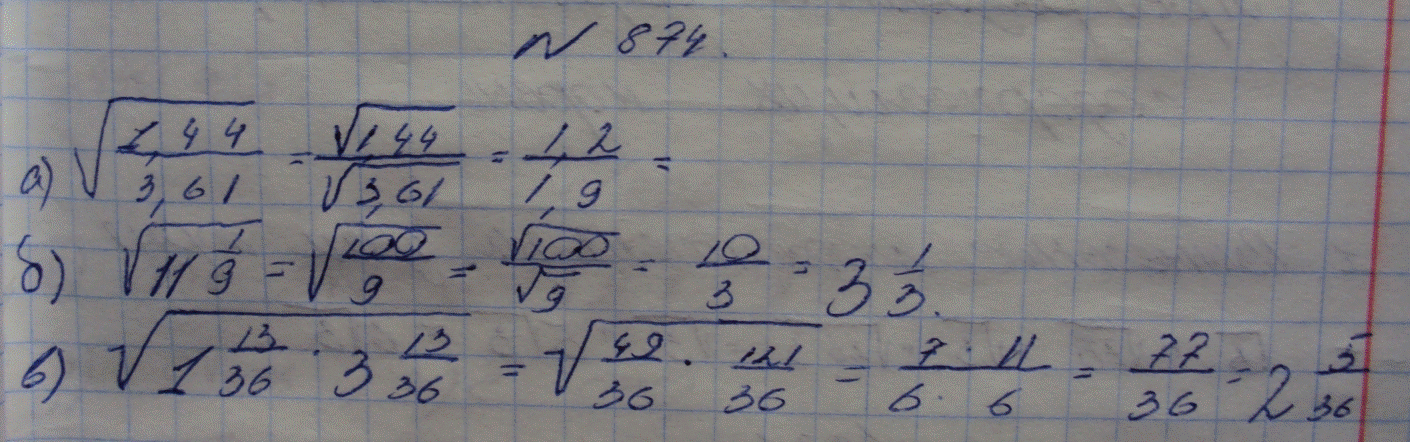 N 874.
а) √(1,44/3,61) = √1,44/√3,61 = 1,2/1,9 =
б) √(11 1/9) = √(100/9) = √100/√9 = 10/3 = 3 1/3.
в) √(1 13/36 · 3 13/36) = √(49/36 · 121/36) = 7 · 11/6 · 6 = 77/36 = 2 5/36